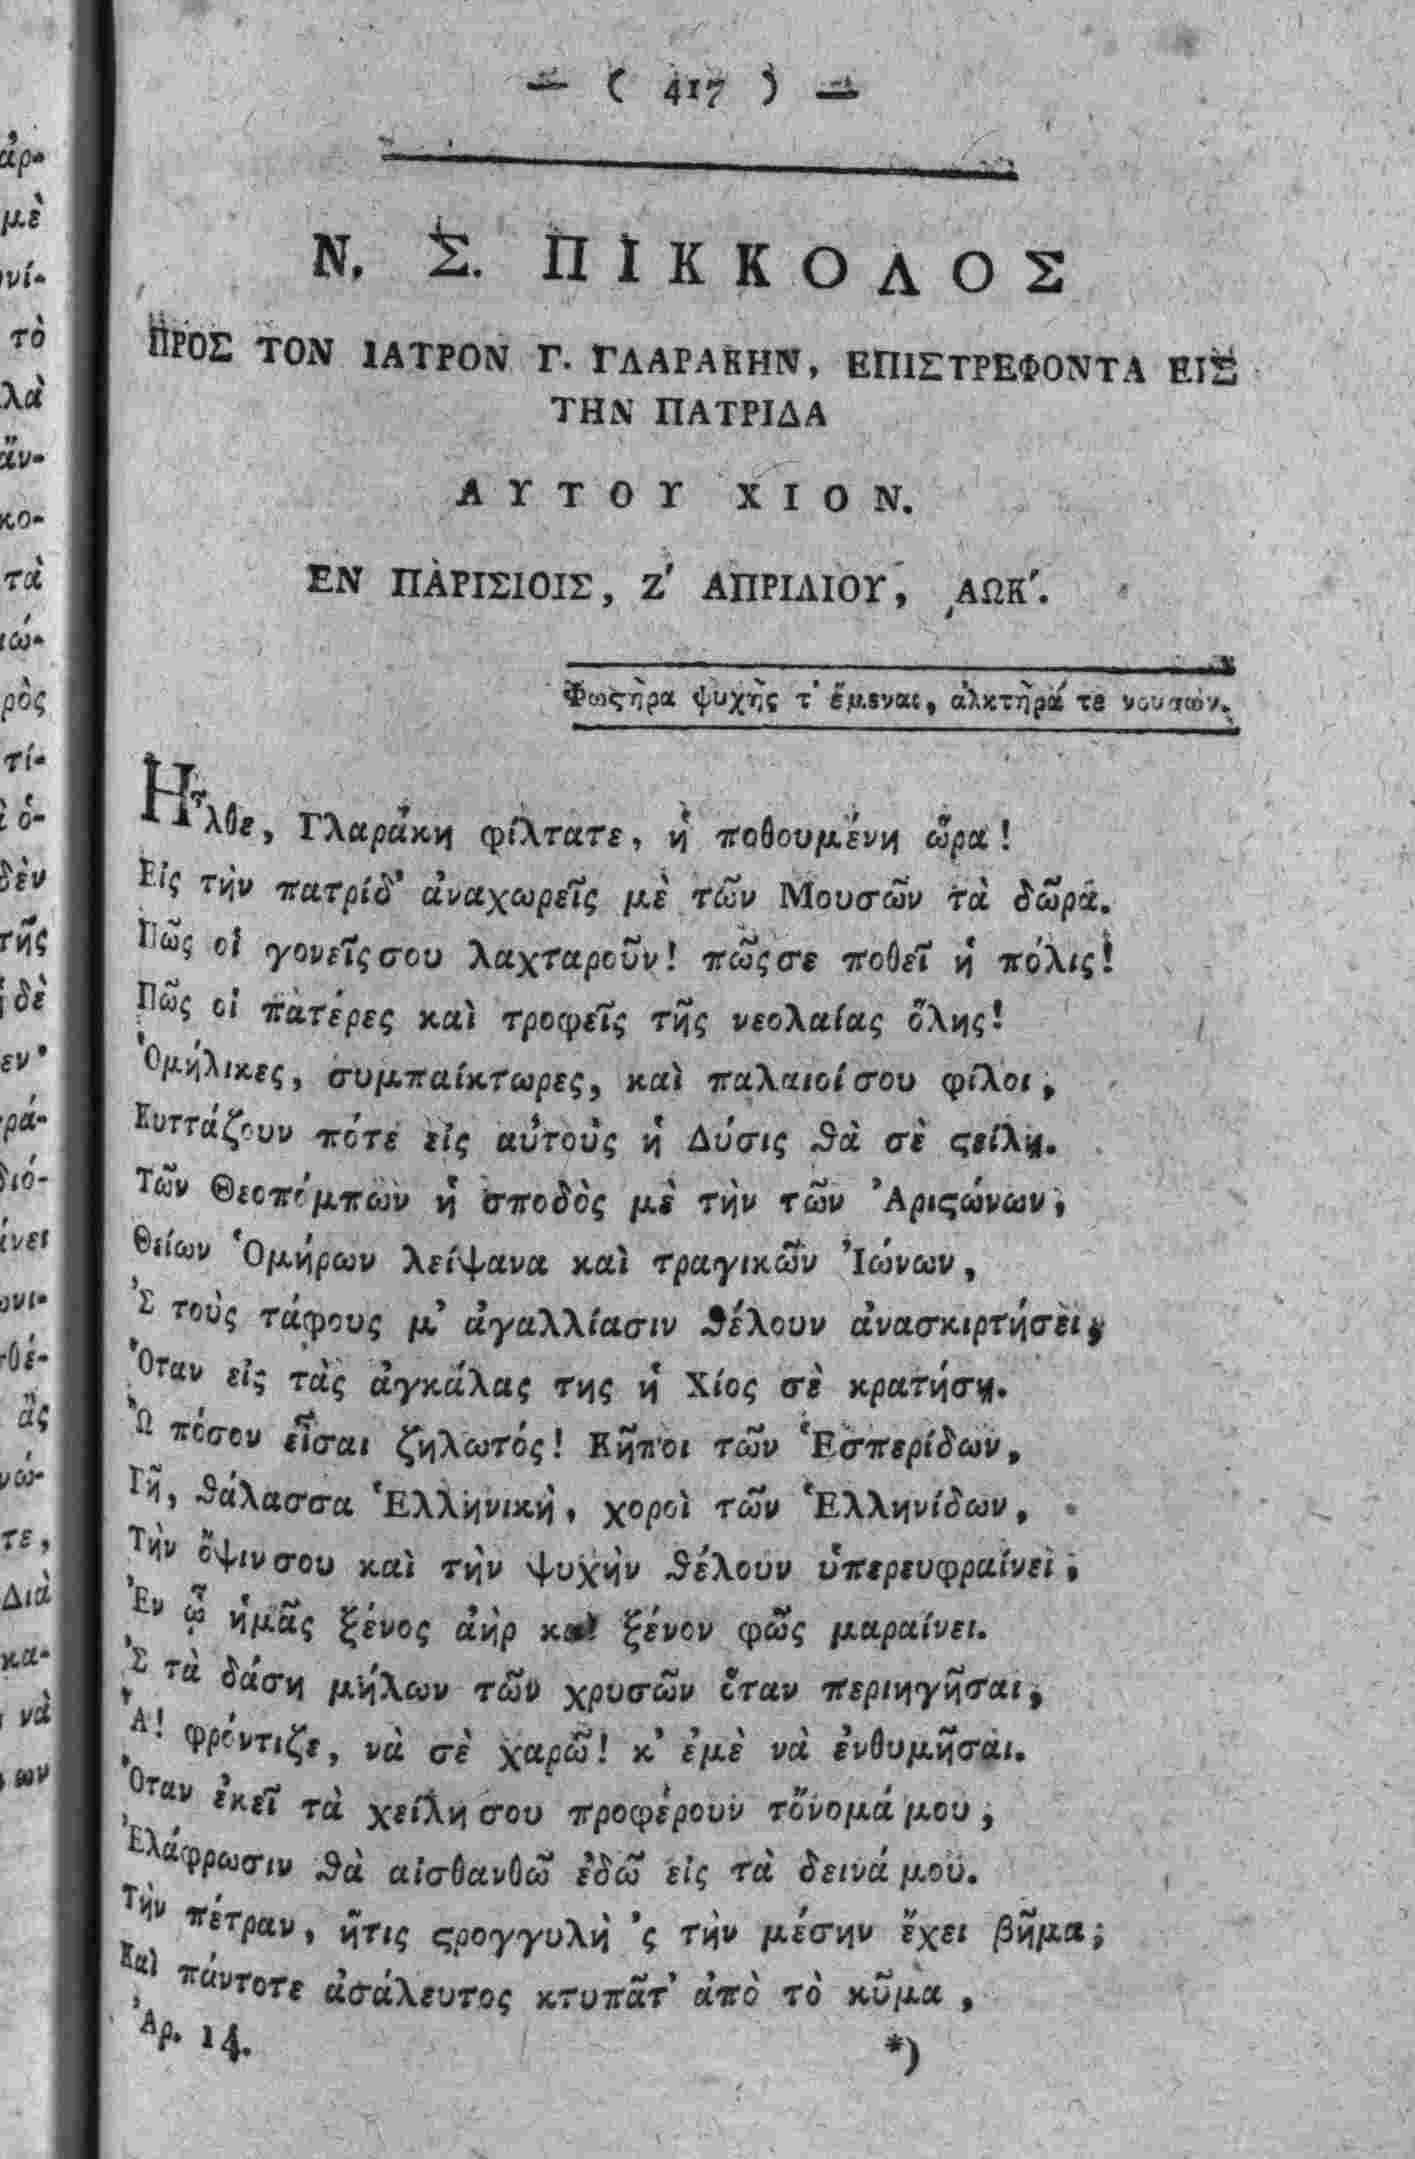 — ( 417 ) —
Ν. Σ. ΠΙΚΚΟΛΟΣ
ΠΡΟΣ ΤΟΝ ΙΑΤΡΟΝ Γ. ΓΛΑΡΑΚΗΝ, ΕΠΙΣΤΡΕΦΟΝΤΑ ΕΙΣ
ΤΗΝ ΠΑΤΡΙΔΑ
ΑΥΤΟΥ ΧΙΟΝ.
ΕΝ ΠΑΡΙΣΙΟΙΣ, Ζ' ΑΠΡΙΛΙΟΥ, ͵ΑΩΚ'.
Φωϛῆρα ψυχῆς τ' ἔμεναι, ἀλκτῆρά τε νούσων.
Ἦλθε, Γλαράκη φίλτατε, ἡ ποθουμένη ὥρα!
Εἰς τὴν πατρίδ' ἀναχωρεῖς μὲ τῶν Μουσῶν τὰ δῶρα.
Πῶς οἱ γονεῖςσου λαχταροῦν! πῶςσε ποθεῖ ἡ πόλις!
Πῶς οἱ πατέρες καὶ τροφεῖς τῆς νεολαίας ὅλης!
Ὁμήλικες, συμπαίκτωρες, καὶ παλαιοίσου φίλοι,
Κυττάζουν πότε εἰς αὐτοὺς ἡ Δύσις θὰ σὲ ϛείλῃ.
Τῶν Θεοπόμπων ἡ σποδὸς μὲ τὴν τῶν Ἀριϛώνων,
Θείων Ὁμήρων λείψανα καὶ τραγικῶν Ἰώνων,
Ἐ τοὺς τάφους μ' ἀγαλλίασιν θέλουν ἀνασκιρτήσει,
Ὅταν εἰς τὰς ἀγκάλας της ἡ Χίος σὲ κρατήσῃ.
Ὢ πόσον εἶσαι ζηλωτός! Κῆποι τῶν Ἑσπερίδων,
Γῆ, θάλασσα Ἑλληνικὴ, χοροὶ τῶν Ἑλληνίδων,
Τὴν ὄψινσου καὶ τὴν ψυχὴν θέλουν ὑπερευφραίνει,
Ἐν ᾧ ἡμᾶς ξένος ἀὴρ καὶ ξένον φῶς μαραίνει.
Ἐ τὰ δάση μήλων τῶν χρυσῶν ὅταν περιηγῆσαι,
Ἄ! φρόντιζε, νὰ σὲ χαρῶ! κ' ἐμὲ νὰ ἐνθυμῆσαι.
Ὅταν ἐκεῖ τὰ χείλη σου προφέρουν τὄνομά μου,
Ἐλάφρωσιν θὰ αἰσθανθῶ ἐδῶ εἰς τὰ δεινά μου.
Τὴν πέτραν, ἥτις ϛρογγυλὴ 'ς τὴν μέσην ἔχει βῆμα,
Καὶ πάντοτε ἀσάλευτος κτυπᾶτ' ἀπὸ τὸ κῦμα,
Ἀρ. 14. *)